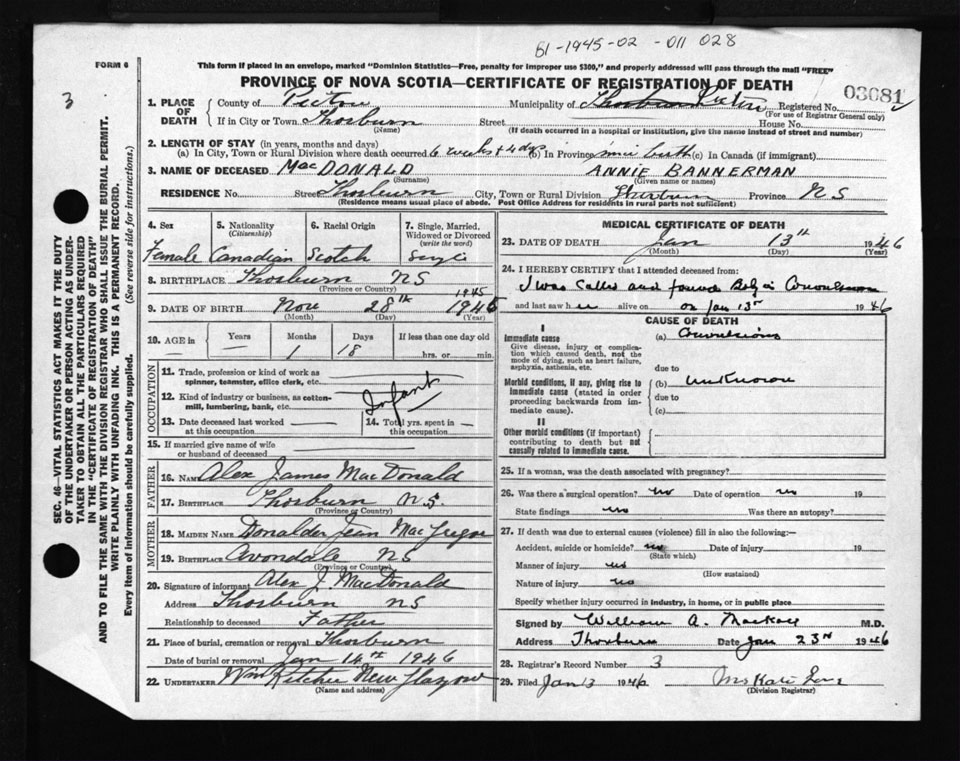 81-1945-02-011 028
FORM 6
This form if placed in an envelope, marked "Dominion Statistics—Free, penalty for improper use $300," and properly addressed will pass through the mail "FREE"
PROVINCE OF NOVA SCOTIA—CERTIFICATE OF REGISTRATION OF DEATH
3
03081
1. PLACE OF DEATH
County of Pictou Municipality of Registered No.
(For use of Registrar General only)
If in City or Town Thorburn Street House No.
(Name) (If death occurred in a hospital or institution, give the name instead of street and number)
2. LENGTH OF STAY (in years, months and days)
(a) In City, Town or Rural Division where death occurred 6 weeks + 4 dys (b) In Province since birth (c) In Canada (if immigrant)
3. NAME OF DECEASED MacDONALD ANNIE BANNERMAN
(Surname) (Given name or names)
RESIDENCE No. Street Thorburn City, Town or Rural Division Thorburn Province NS
(Residence means usual place of abode. Post Office Address for residents in rural parts not sufficient)
4. Sex 5. Nationality (Citizenship) 6. Racial Origin 7. Single, Married, Widowed or Divorced (write the word)
Female Canadian Scotch Single
8. BIRTHPLACE Thorburn NS
(Province or Country)
1945
9. DATE OF BIRTH Nov 28th 1945
(Month) (Day) (Year)
10. AGE in Years Months Days If less than one day old
— 1 18 hrs. or min.
OCCUPATION
11. Trade, profession or kind of work as spinner, teamster, office clerk, etc.
12. Kind of industry or business, as cotton-mill, lumbering, bank, etc.
Infant
13. Date deceased last worked at this occupation — 14. Total yrs. spent in this occupation —
15. If married give name of wife or husband of deceased
FATHER
16. NAME Alex James MacDonald
17. BIRTHPLACE Thorburn NS.
(Province or Country)
MOTHER
18. MAIDEN NAME Jean MacGregor
19. BIRTHPLACE Avondale NS
(Province or Country)
20. Signature of informant Alex J. MacDonald
Address Thorburn NS
Relationship to deceased Father
21. Place of burial, cremation or removal Thorburn
Date of burial or removal Jan 14th 1946
22. UNDERTAKER Wm Ritchie New Glasgow
(Name and address)
MEDICAL CERTIFICATE OF DEATH
23. DATE OF DEATH Jan 13th 1946
(Month) (Day) (Year)
24. I HEREBY CERTIFY that I attended deceased from:
I was called and found Convulsions
and last saw her alive on on Jan 13 1946
CAUSE OF DEATH
I
Immediate cause
Give disease, injury or complication which caused death, not the mode of dying, such as heart failure, asphyxia, asthenia, etc.
(a) Convulsions
due to
Morbid conditions, if any, giving rise to immediate cause (stated in order proceeding backwards from immediate cause).
(b) unknown
due to
(c)
II
Other morbid conditions (if important) contributing to death but not causally related to immediate cause.
25. If a woman, was the death associated with pregnancy?
26. Was there a surgical operation? no Date of operation no 19
State findings no Was there an autopsy?
27. If death was due to external causes (violence) fill in also the following:—
Accident, suicide or homicide? no Date of injury 19
(State which)
Manner of injury no
(How sustained)
Nature of injury no
Specify whether injury occurred in industry, in home, or in public place
Signed by William A. M.D.
Address Thorburn Date Jan 23rd 1946
28. Registrar's Record Number 3
29. Filed Jan 13 1946 Mrs Kate
(Division Registrar)
SEC. 46—VITAL STATISTICS ACT MAKES IT THE DUTY
OF THE UNDERTAKER OR PERSON ACTING AS UNDER-
TAKER TO OBTAIN ALL THE PARTICULARS REQUIRED
IN THE "CERTIFICATE OF REGISTRATION OF DEATH"
AND TO FILE THE SAME WITH THE DIVISION REGISTRAR WHO SHALL ISSUE THE BURIAL PERMIT.
WRITE PLAINLY WITH UNFADING INK. THIS IS A PERMANENT RECORD.
Every item of information should be carefully supplied. (See reverse side for instructions.)